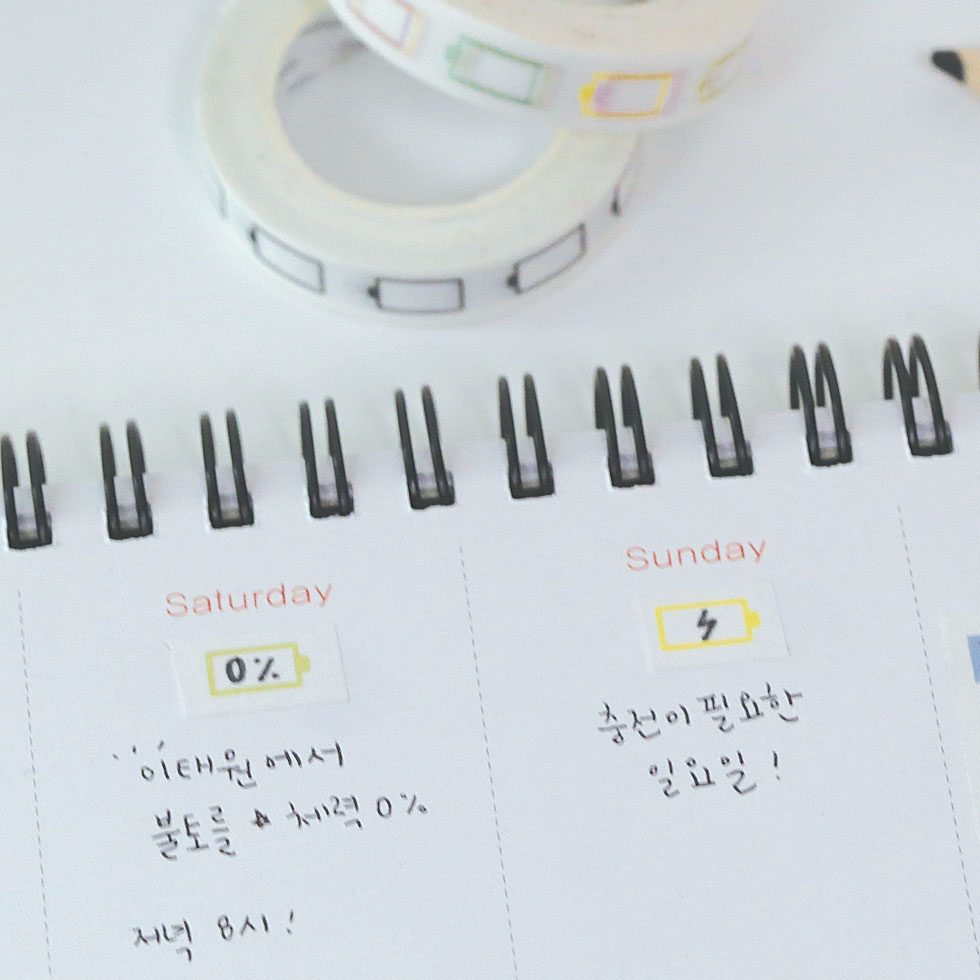 Saturday
0%
이태원에서
불토를 ★ 체력 0%
저녁 8시!
Sunday
충전이 필요한
일요일!